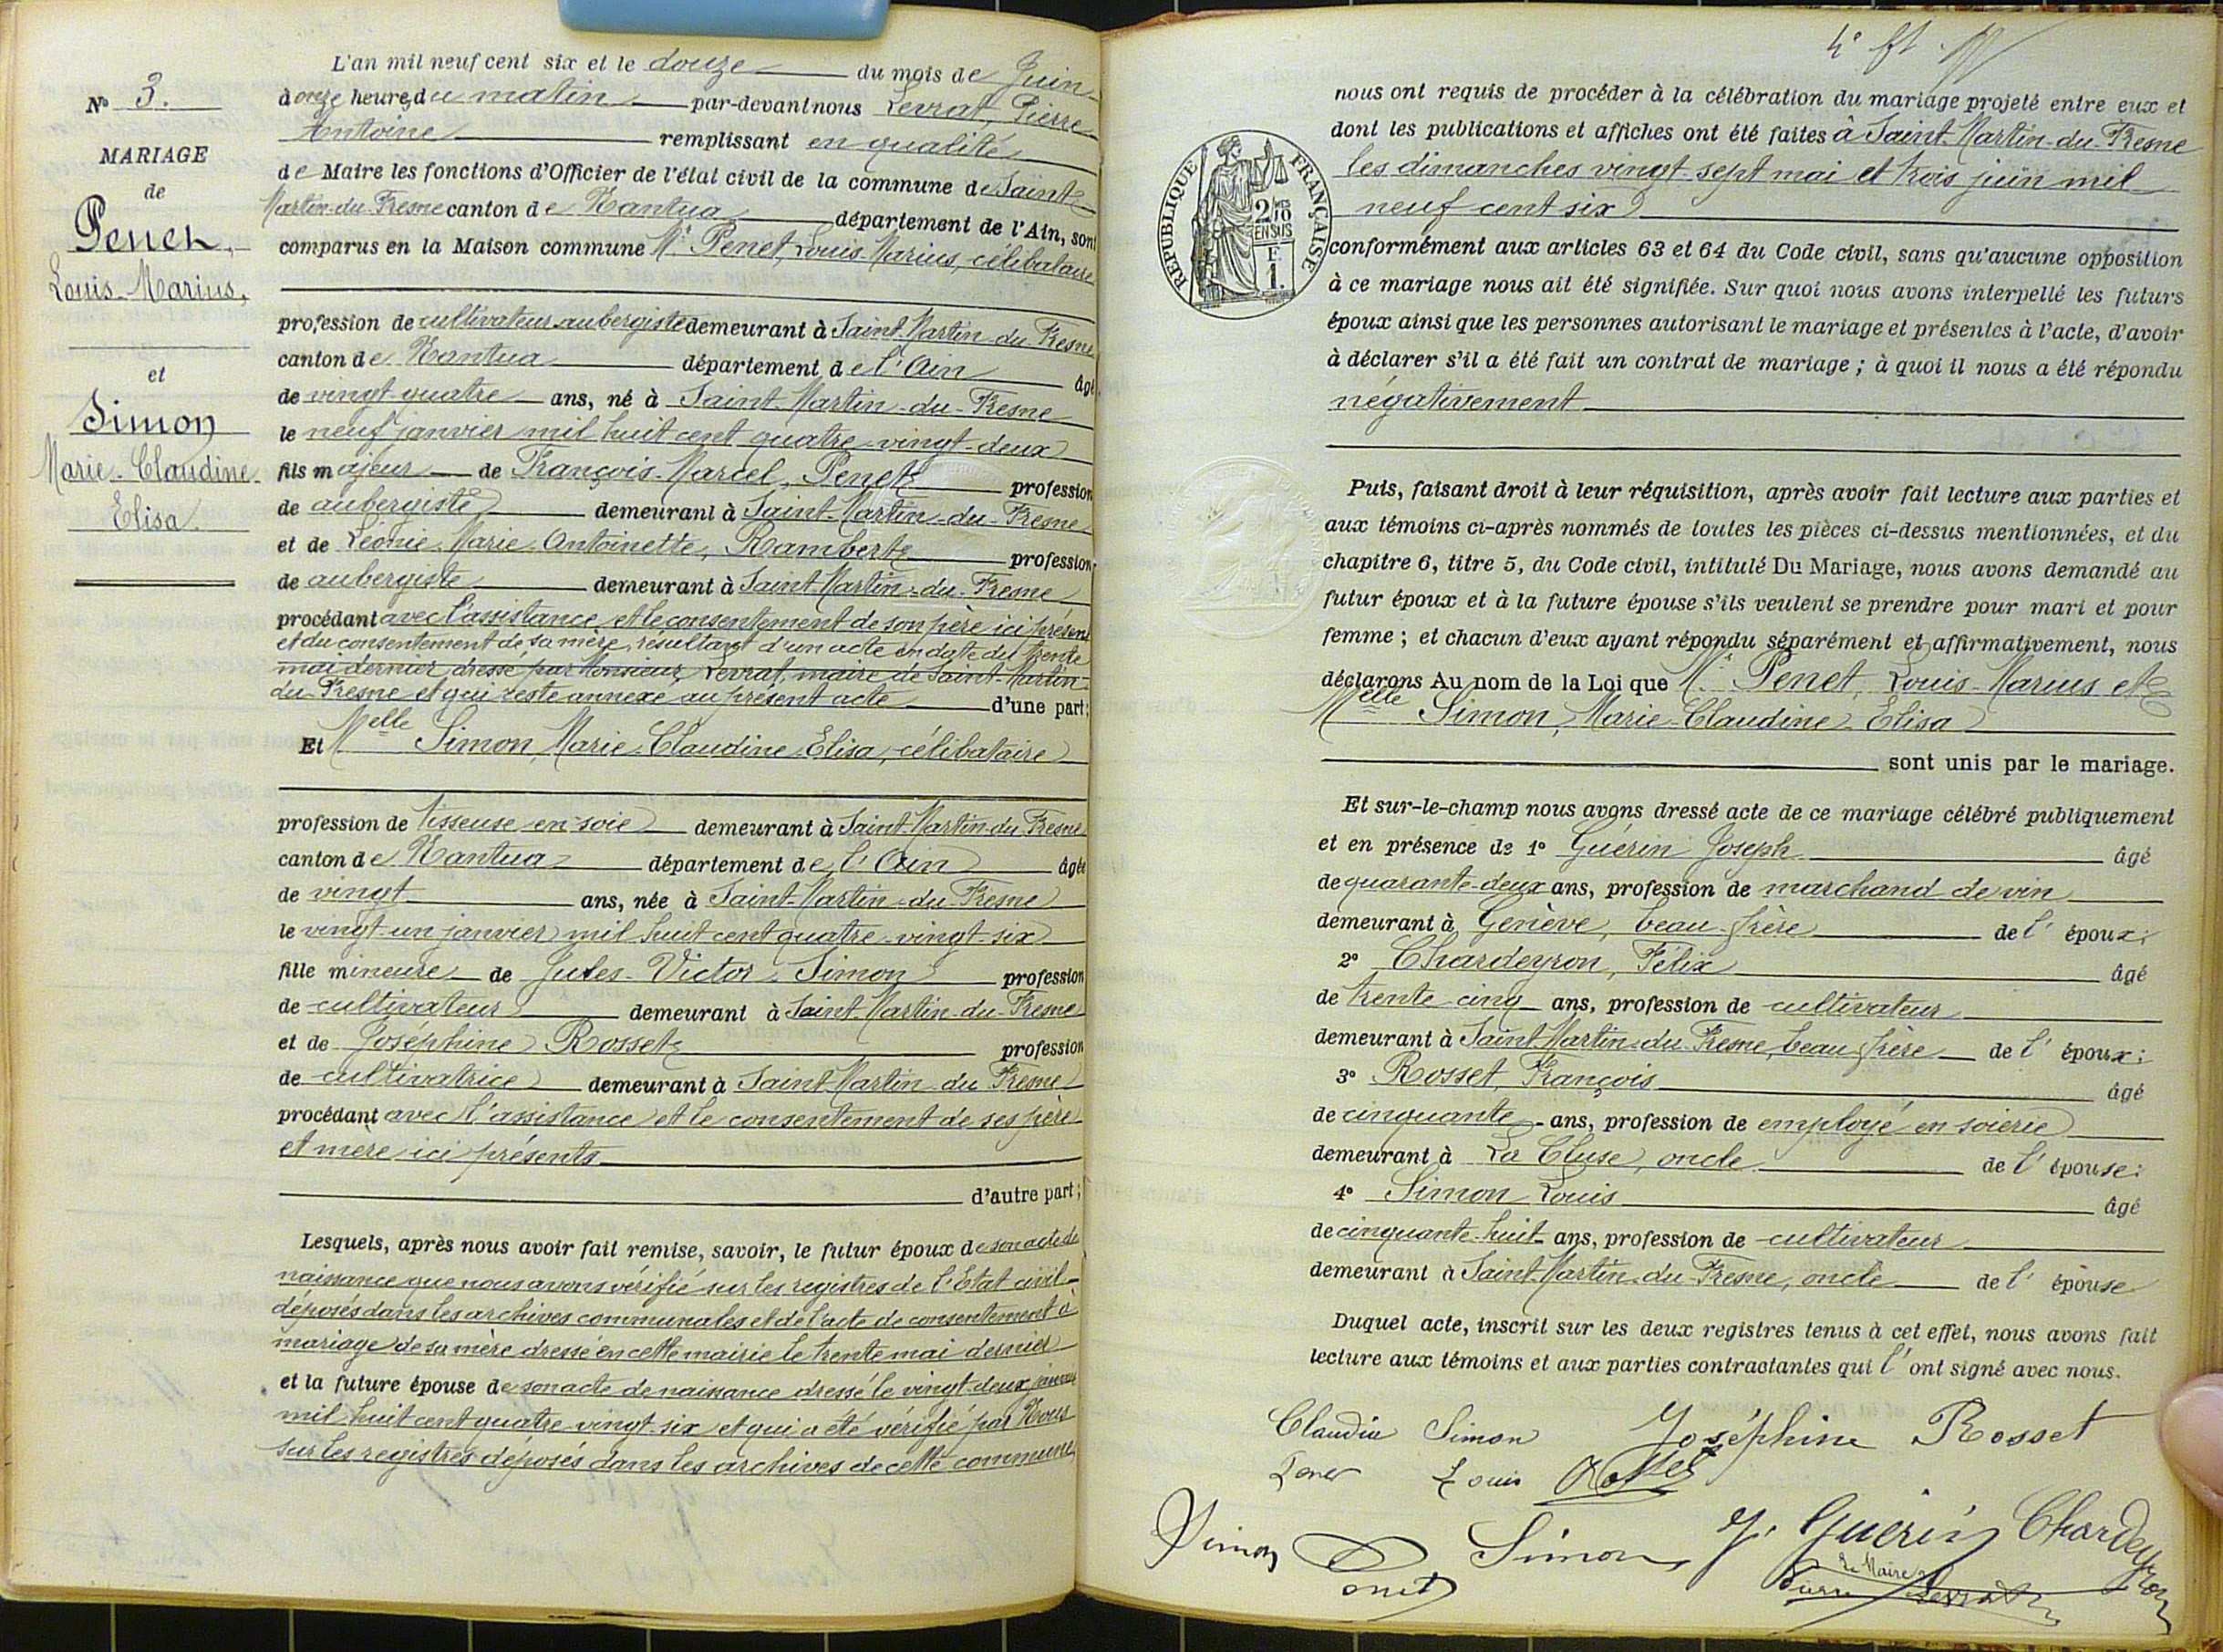 N° 3.
MARIAGE
de
Penet,
Louis-Marius,
et
Simon
Marie-Claudine-
Elisa.
L'an mil neuf cent six et le douze du mois de Juin
à onze heures du matin par-devant nous Levrat, Pierre
Antoine remplissant en qualité
de Maire les fonctions d'Officier de l'état civil de la commune de Saint
Martin-du-Fresne canton de Nantua département de l'Ain, sont
comparus en la Maison commune Mr Penet, Louis-Marius, célibataire
profession de cultivateur aubergiste demeurant à Saint-Martin-du-Fresne
canton de Nantua département de l'Ain âgé
de vingt-quatre ans, né à Saint-Martin-du-Fresne
le neuf janvier mil huit cent quatre-vingt-deux
fils majeur de François-Marcel, Penet profession
de aubergiste demeurant à Saint-Martin-du-Fresne
et de Léonie-Marie-Antoinette, Rambert profession
de aubergiste demeurant à Saint-Martin-du-Fresne
procédant avec l'assistance et le consentement de son père ici présent
et du consentement de sa mère, résultant d'un acte en date du trente
mai dernier dressé par Monsieur Levrat, maire de Saint-Martin-
du-Fresne et qui reste annexé au présent acte d'une part;
Et Melle Simon, Marie-Claudine-Elisa, célibataire
profession de tisseuse en soie demeurant à Saint-Martin-du-Fresne
canton de Nantua département de l'Ain âgée
de vingt ans, née à Saint-Martin-du-Fresne
le vingt-un janvier mil huit cent quatre-vingt-six
fille mineure de Jules-Victor-Simon profession
de cultivateur demeurant à Saint-Martin-du-Fresne
et de Joséphine Rosset profession
de cultivatrice demeurant à Saint-Martin-du-Fresne
procédant avec l'assistance et le consentement de ses père
et mère ici présents
d'autre part;
Lesquels, après nous avoir fait remise, savoir, le futur époux de son acte de
naissance que nous avons vérifié sur les registres de l'Etat civil
déposés dans les archives communales et de l'acte de consentement à
mariage de sa mère dressé en cette mairie le trente mai dernier
et la future épouse de son acte de naissance dressé le vingt-deux janvier
mil huit cent quatre-vingt-six et qui a été vérifié par Nous
sur les registres déposés dans les archives de cette commune
nous ont requis de procéder à la célébration du mariage projeté entre eux et
dont les publications et affiches ont été faites à Saint-Martin-du-Fresne
les dimanches vingt-sept mai et trois juin mil
neuf cent six
RÉPUBLIQUE FRANÇAISE
2/10
EN SUS
F
1.
conformément aux articles 63 et 64 du Code civil, sans qu'aucune opposition
à ce mariage nous ait été signifiée. Sur quoi nous avons interpellé les futurs
époux ainsi que les personnes autorisant le mariage et présentes à l'acte, d'avoir
à déclarer s'il a été fait un contrat de mariage ; à quoi il nous a été répondu
négativement
Puis, faisant droit à leur réquisition, après avoir fait lecture aux parties et
aux témoins ci-après nommés de toutes les pièces ci-dessus mentionnées, et du
chapitre 6, titre 5, du Code civil, intitulé Du Mariage, nous avons demandé au
futur époux et à la future épouse s'ils veulent se prendre pour mari et pour
femme ; et chacun d'eux ayant répondu séparément et affirmativement, nous
déclarons Au nom de la Loi que Mr Penet, Louis-Marius et
Melle Simon, Marie-Claudine-Elisa
sont unis par le mariage.
Et sur-le-champ nous avons dressé acte de ce mariage célébré publiquement
et en présence de 1° Guérin Joseph âgé
de quarante-deux ans, profession de marchand de vin
demeurant à Genève, beau-frère de l'époux;
2° Chardeyron, Félix âgé
de trente-cinq ans, profession de cultivateur
demeurant à Saint-Martin-du-Fresne, beau-frère de l'époux;
3° Rosset, François âgé
de cinquante ans, profession de employé en soierie
demeurant à La Cluse, oncle de l'épouse;
4° Simon Louis âgé
de cinquante-huit ans, profession de cultivateur
demeurant à Saint-Martin-du-Fresne, oncle de l'épouse
Duquel acte, inscrit sur les deux registres tenus à cet effet, nous avons fait
lecture aux témoins et aux parties contractantes qui l'ont signé avec nous.
Claudia Simon Joséphine Rosset
Penet Louis Rosset
Simon Penet Simon J. Guérin Chardeyron
Le Maire
Pierre Levrat